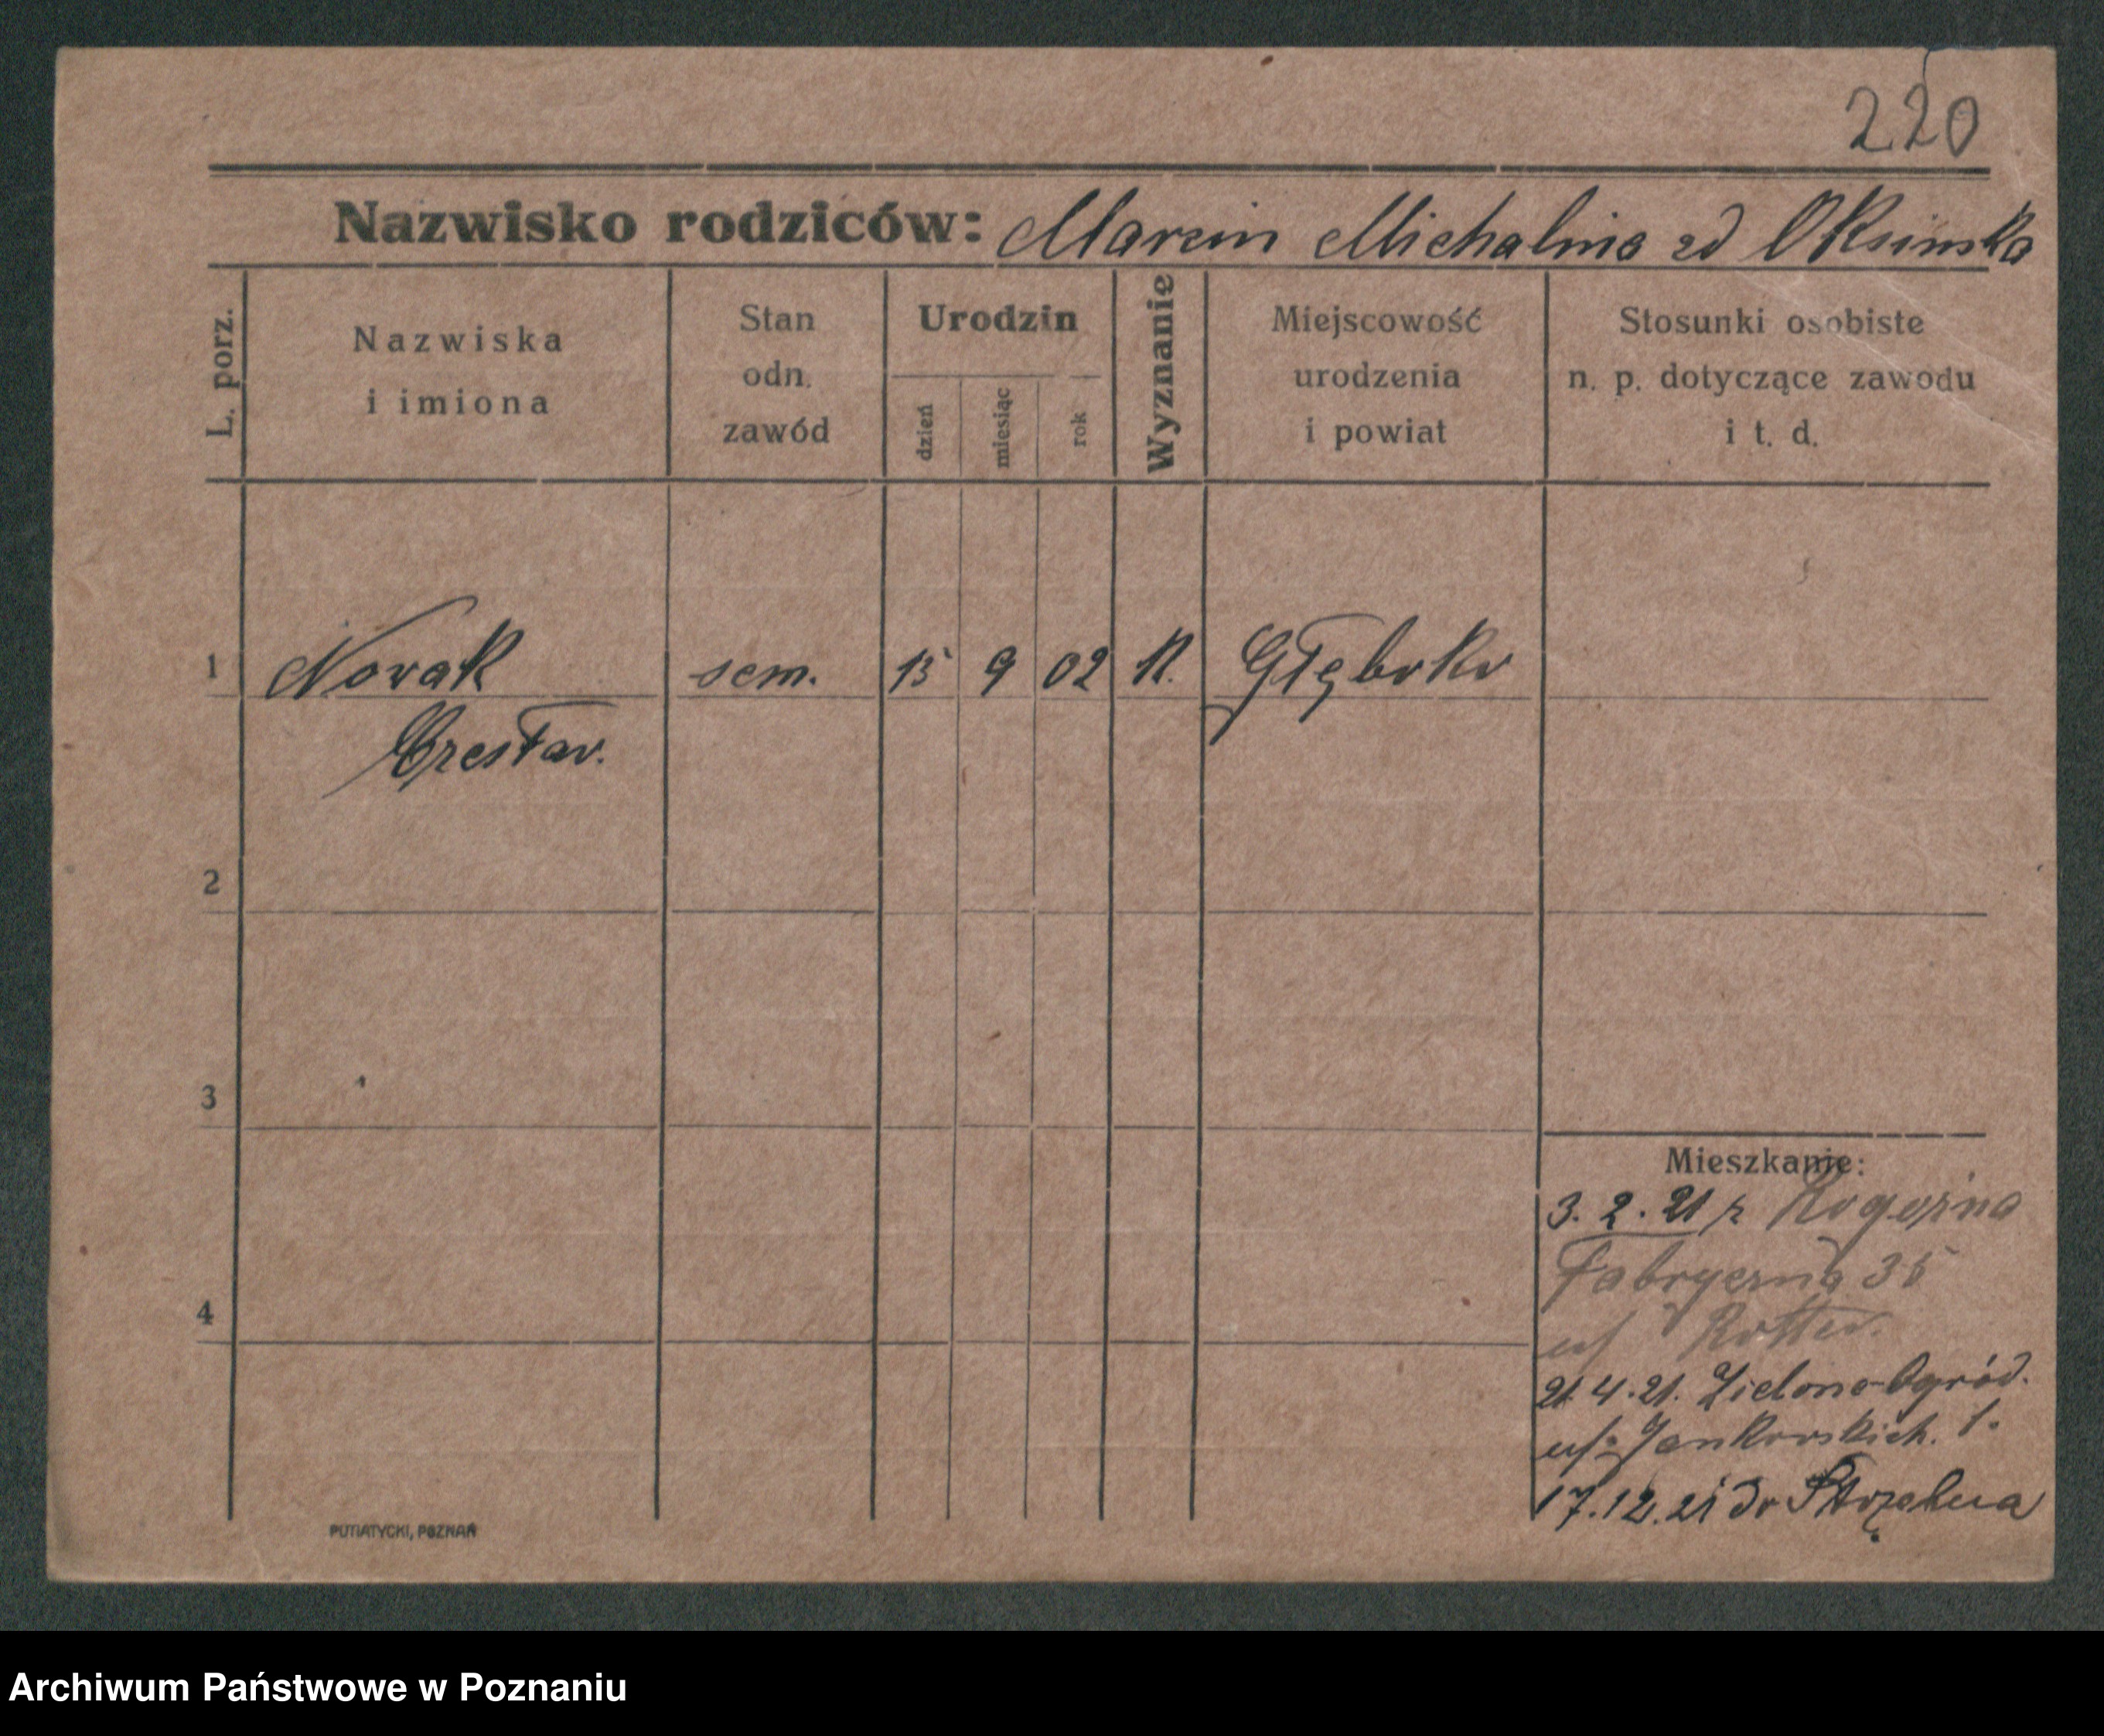 220
Nazwisko rodziców: Marcin Michalina zd Oksinska
L. porz.
Nazwiska
i imiona
Stan
odn.
zawód
Urodzin
dzień
miesiąc
rok
Wyznanie
Miejscowość
urodzenia
i powiat
Stosunki osobiste
n. p. dotyczące zawodu
i t. d.
1 Nowak sem. 15 9 02 K. Głęboko
Czesław.
2
3
4
Mieszkanie:
3. 2. 21 r
Fabryczna 35
u/
21. 4. 21. Zielona-Ogród.
u/ Jankowskich. 1.
17.12.21 do Strzelna
PUTIATYCKI, POZNAŃ
Archiwum Państwowe w Poznaniu